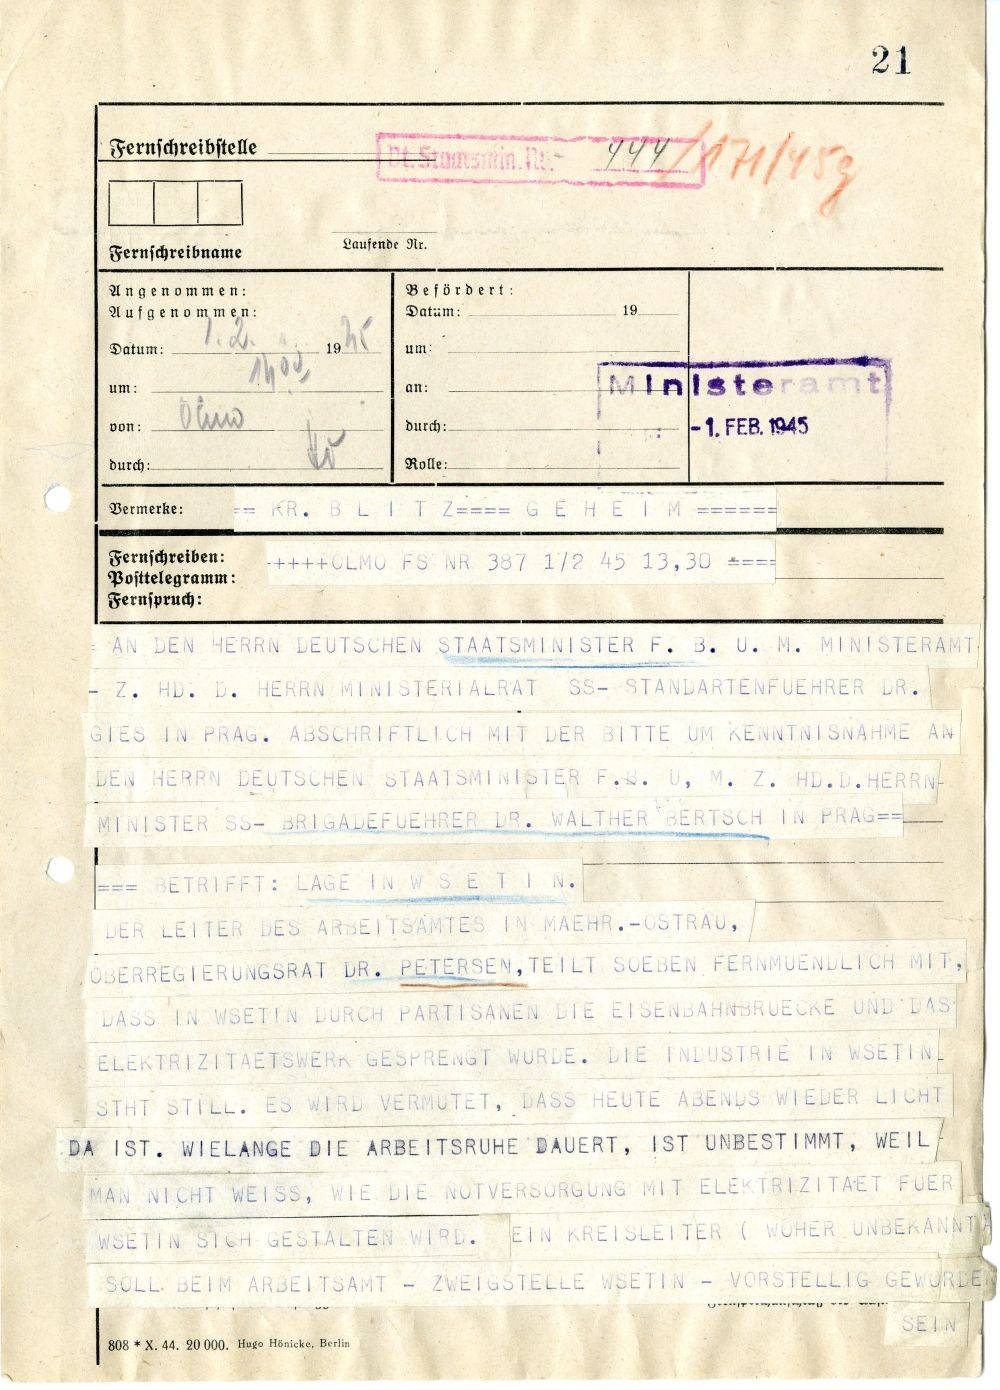 21
Fernschreibstelle
Dt. Staatsmin. Nr. 444/171/45g
Fernschreibname
Laufende Nr.
Angenommen:
Aufgenommen:
Datum: 1.2. 19 45
um: 14 00
von: Olmo
durch:
Befördert:
Datum: 19
um:
an:
durch:
Rolle:
Ministeramt
-1. FEB. 1945
Vermerke: == KR. B L I T Z==== G E H E I M ======
Fernschreiben: ++++OLMO FS NR 387 1/2 45 13,30 ====
Posttelegramm:
Fernspruch:
= AN DEN HERRN DEUTSCHEN STAATSMINISTER F. B. U. M. MINISTERAMT
- Z. HD. D. HERRN MINISTERIALRAT SS- STANDARTENFUEHRER DR.
GIES IN PRAG. ABSCHRIFTLICH MIT DER BITTE UM KENNTNISNAHME AN
DEN HERRN DEUTSCHEN STAATSMINISTER F.B. U, M. Z. HD.D.HERRN-
MINISTER SS- BRIGADEFUEHRER DR. WALTHER BERTSCH IN PRAG==
=== BETRIFFT: LAGE IN W S E T I N.
DER LEITER DES ARBEITSAMTES IN MAEHR.-OSTRAU,
OBERREGIERUNGSRAT DR. PETERSEN,TEILT SOEBEN FERNMUENDLICH MIT,
DASS IN WSETIN DURCH PARTISANEN DIE EISENBAHNBRUECKE UND DAS
ELEKTRIZITAETSWERK GESPRENGT WURDE. DIE INDUSTRIE IN WSETIN
STHT STILL. ES WIRD VERMUTET, DASS HEUTE ABENDS WIEDER LICHT
DA IST. WIELANGE DIE ARBEITSRUHE DAUERT, IST UNBESTIMMT, WEIL
MAN NICHT WEISS, WIE DIE NOTVERSORGUNG MIT ELEKTRIZITAET FUER
WSETIN SICH GESTALTEN WIRD. EIN KREISLEITER ( WOHER UNBEKANNT)
SOLL BEIM ARBEITSAMT - ZWEIGSTELLE WSETIN - VORSTELLIG GEWORDE
SEIN
808 * X. 44. 20 000. Hugo Hönicke, Berlin